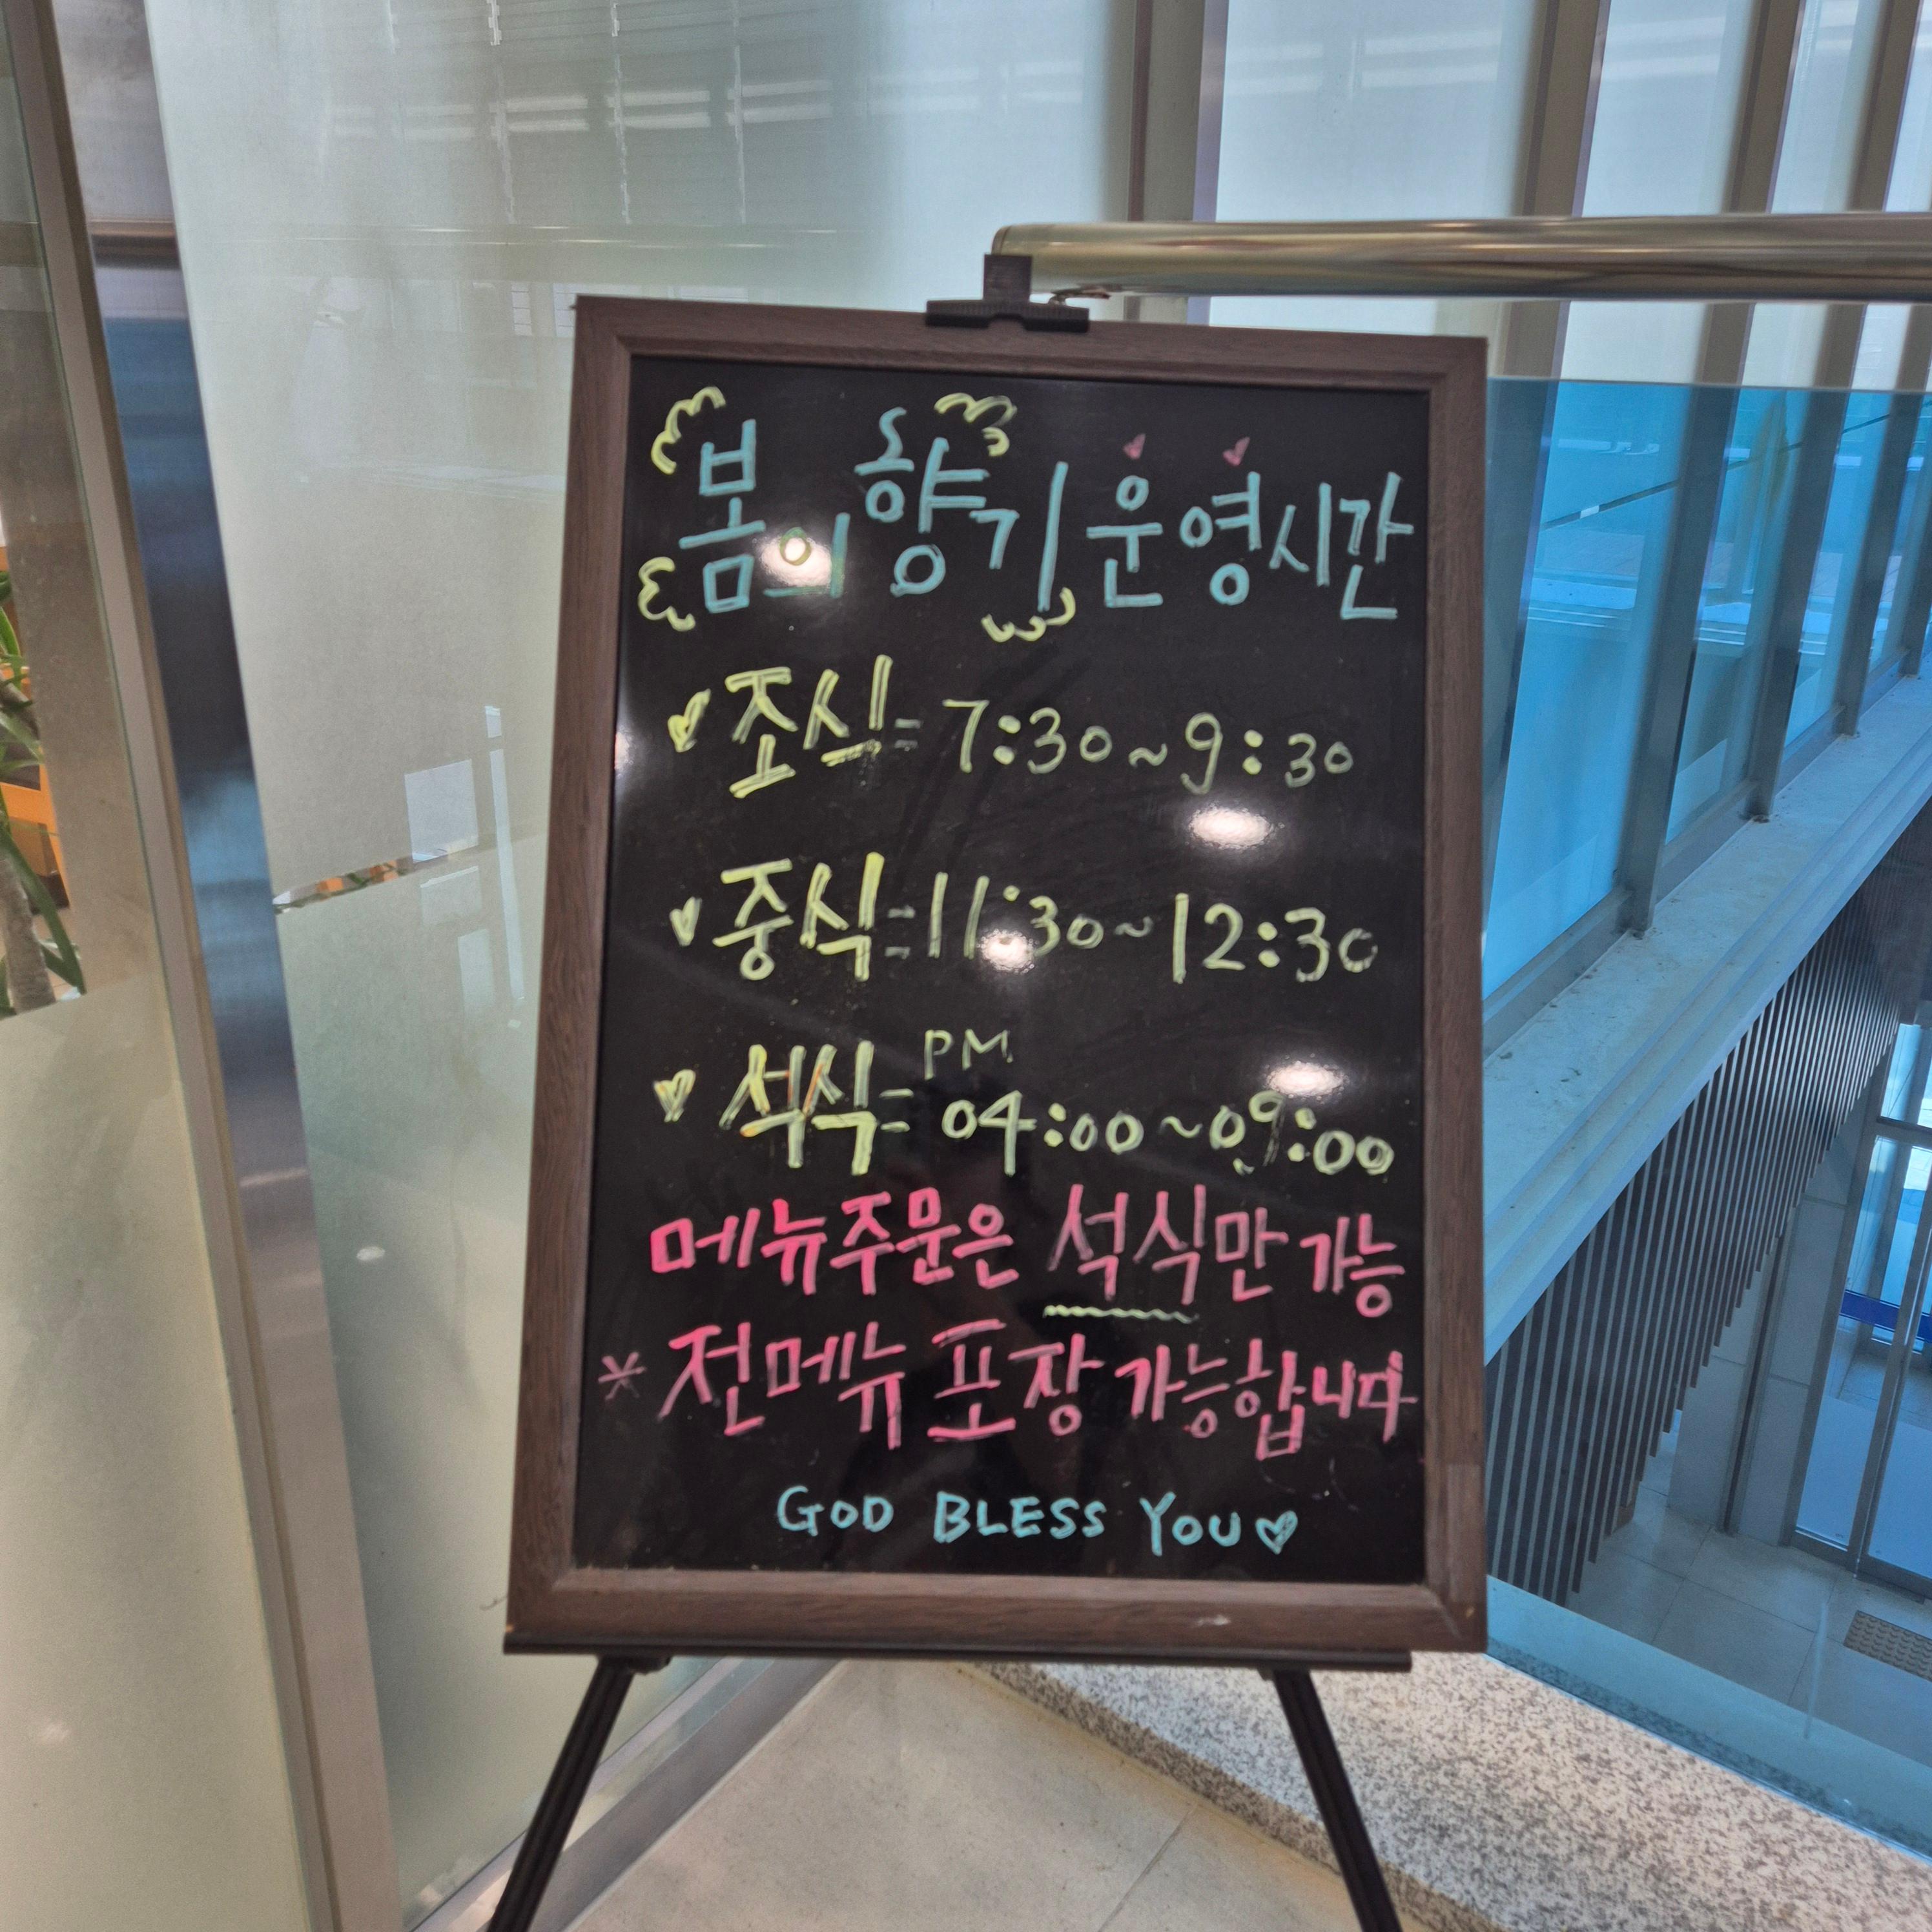 봄의 향기 운영시간
조식 = 7:30 ~ 9:30
중식 = 11:30 ~ 12:30
PM
석식 = 04:00 ~ 09:00
메뉴주문은 석식만 가능
* 전메뉴 포장 가능합니다
GOD BLESS YOU♡